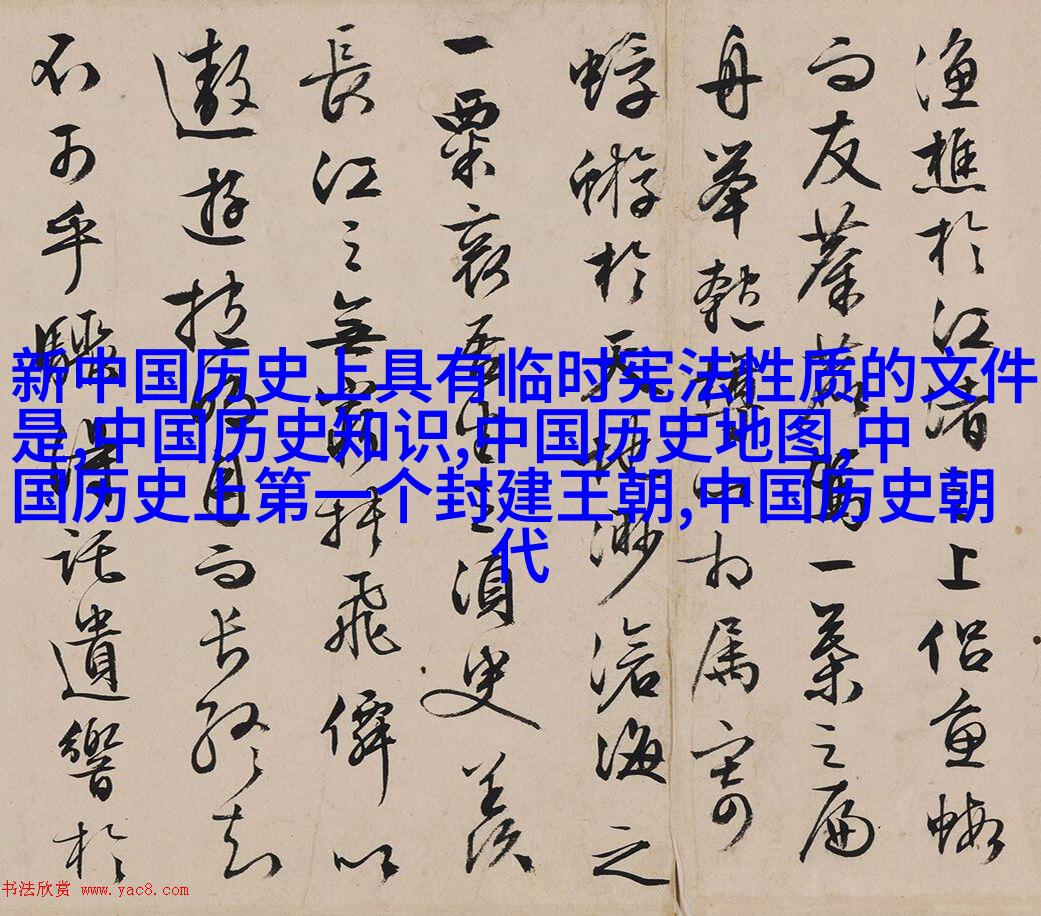 漁樵於江渚之上侶魚蝦
而友麋鹿駕一葉之扁
舟舉匏樽以相属寄
蜉蝣於天地渺滄海之
一粟哀吾生之須臾羨
長江之無窮挾飛僊以
遨遊抱明月而長終知
不可乎驟得託遺響於
新中国历史上具有临时宪法性质的文件
是,中国历史知识,中国历史地图,中
国历史上第一个封建王朝,中国历史朝
代
书法欣赏 www.yac8.com